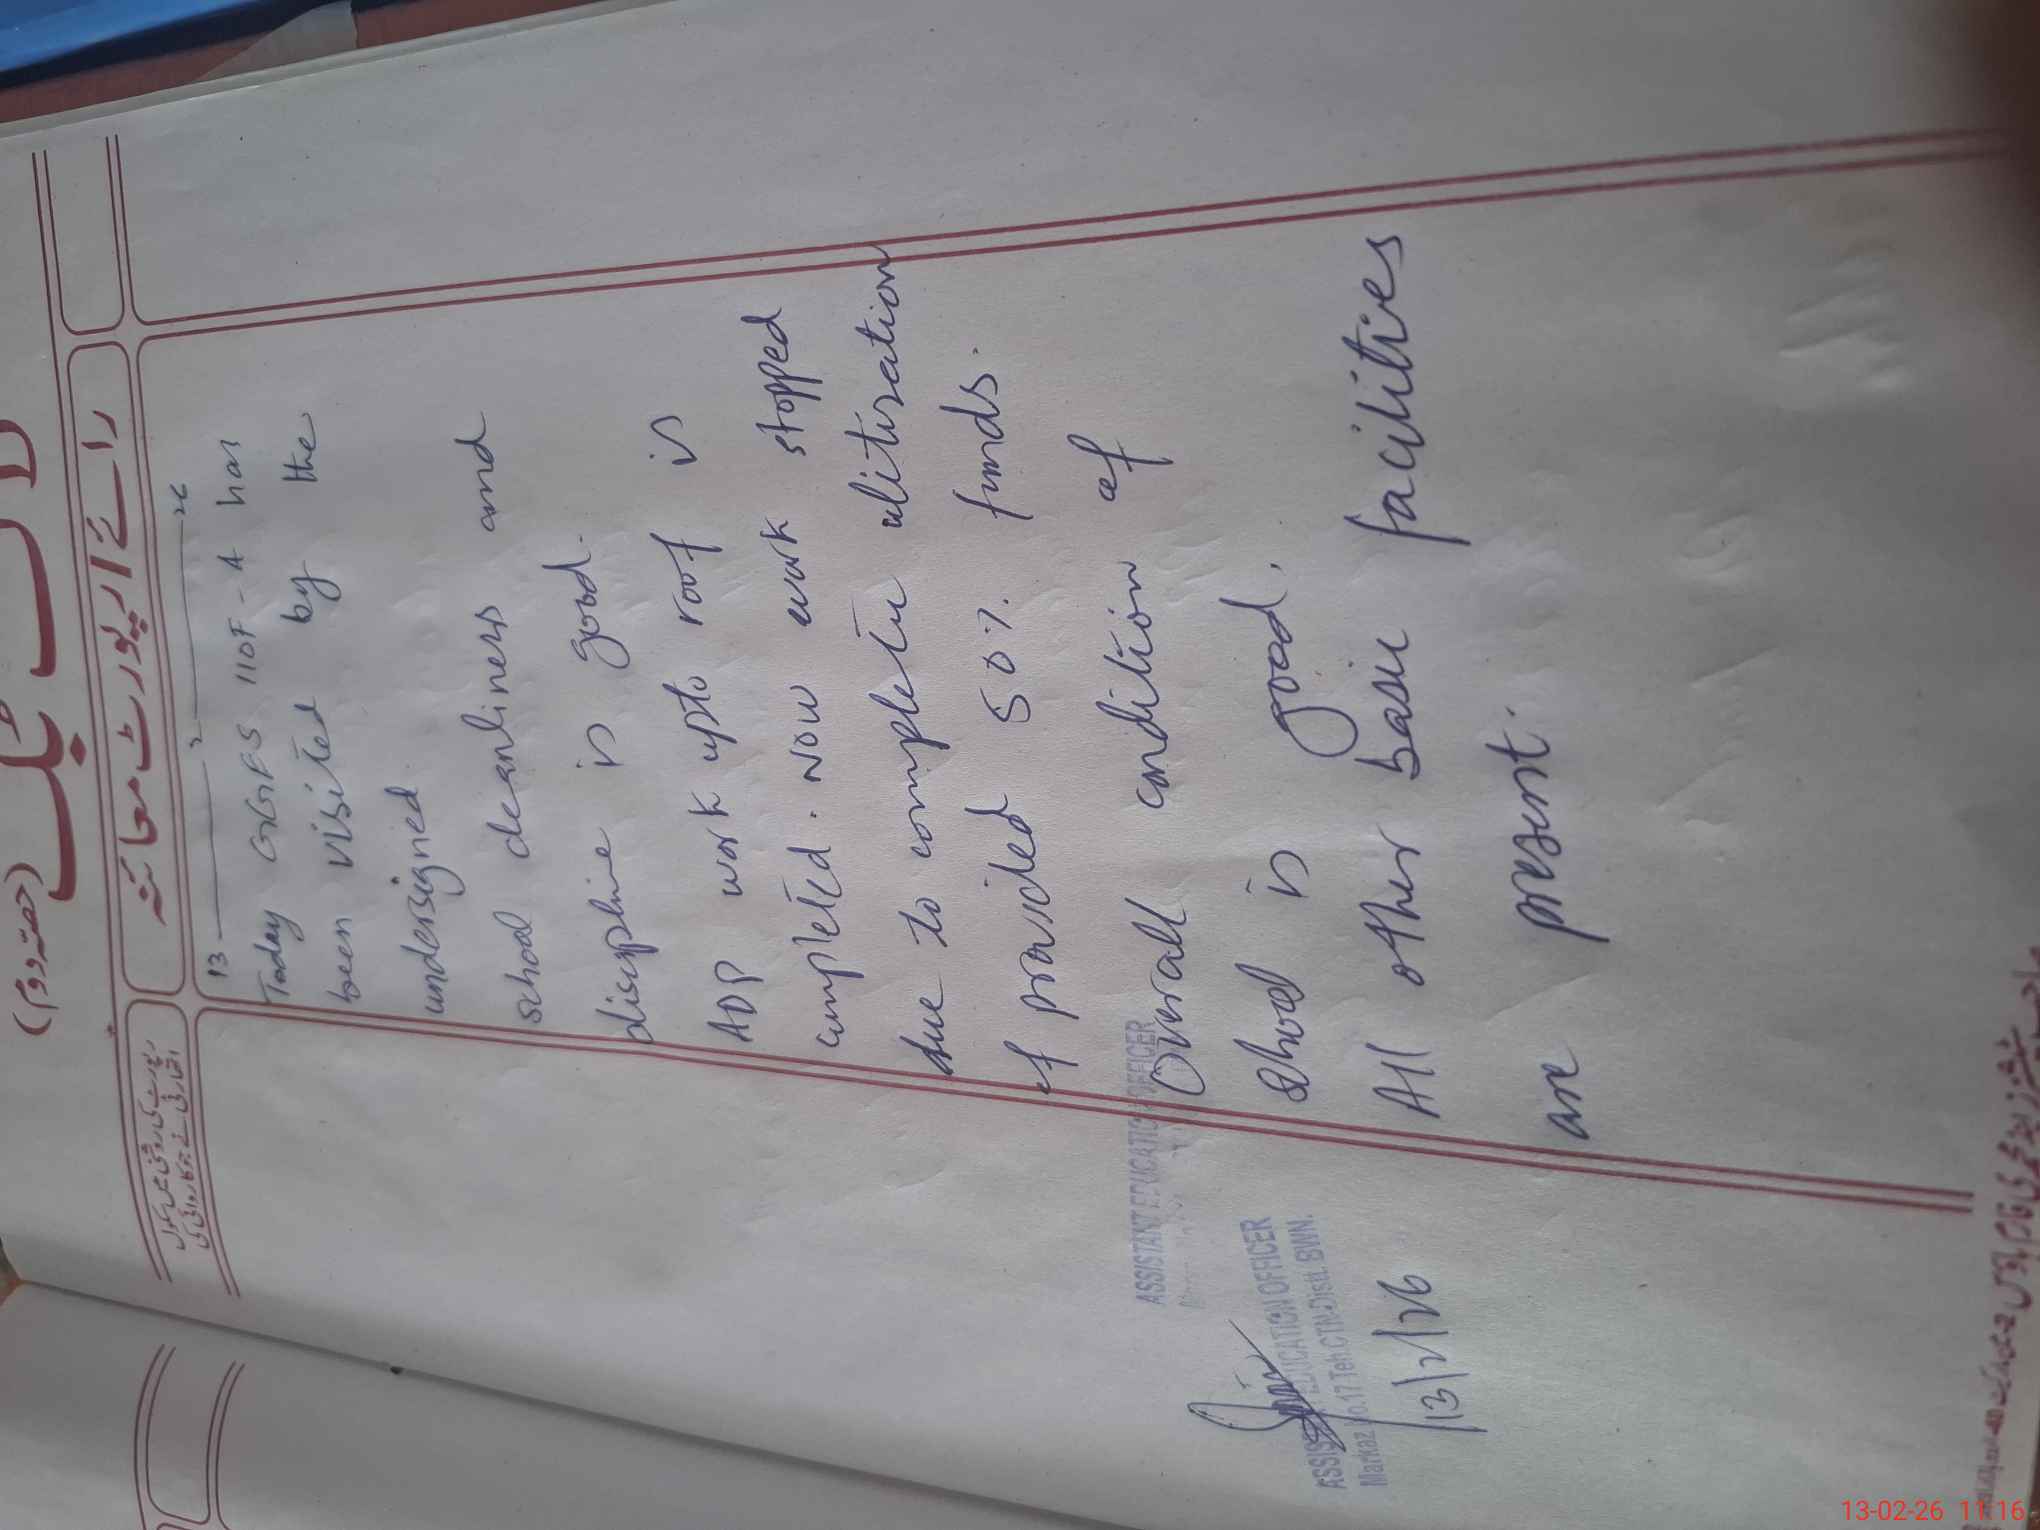 لاگ بک
(حصہ دوم)
رائے / رپورٹ معائنہ
13 — 2 — 26
Today GGES 110F-A has
been visited by the
undersigned.
school cleanliness and
discipline is good.
ADP work upto roof is
completed. Now work stopped
due to complete utilization
of provided 50% funds.
Overall condition of
school is good.
All other basic facilities
are present.
ASSISTANT EDUCATION OFFICER
ASSISTANT EDUCATION OFFICER
Markaz No.17 Teh.CTN.Distt.BWN.
13/2/26
13-02-26 11:16